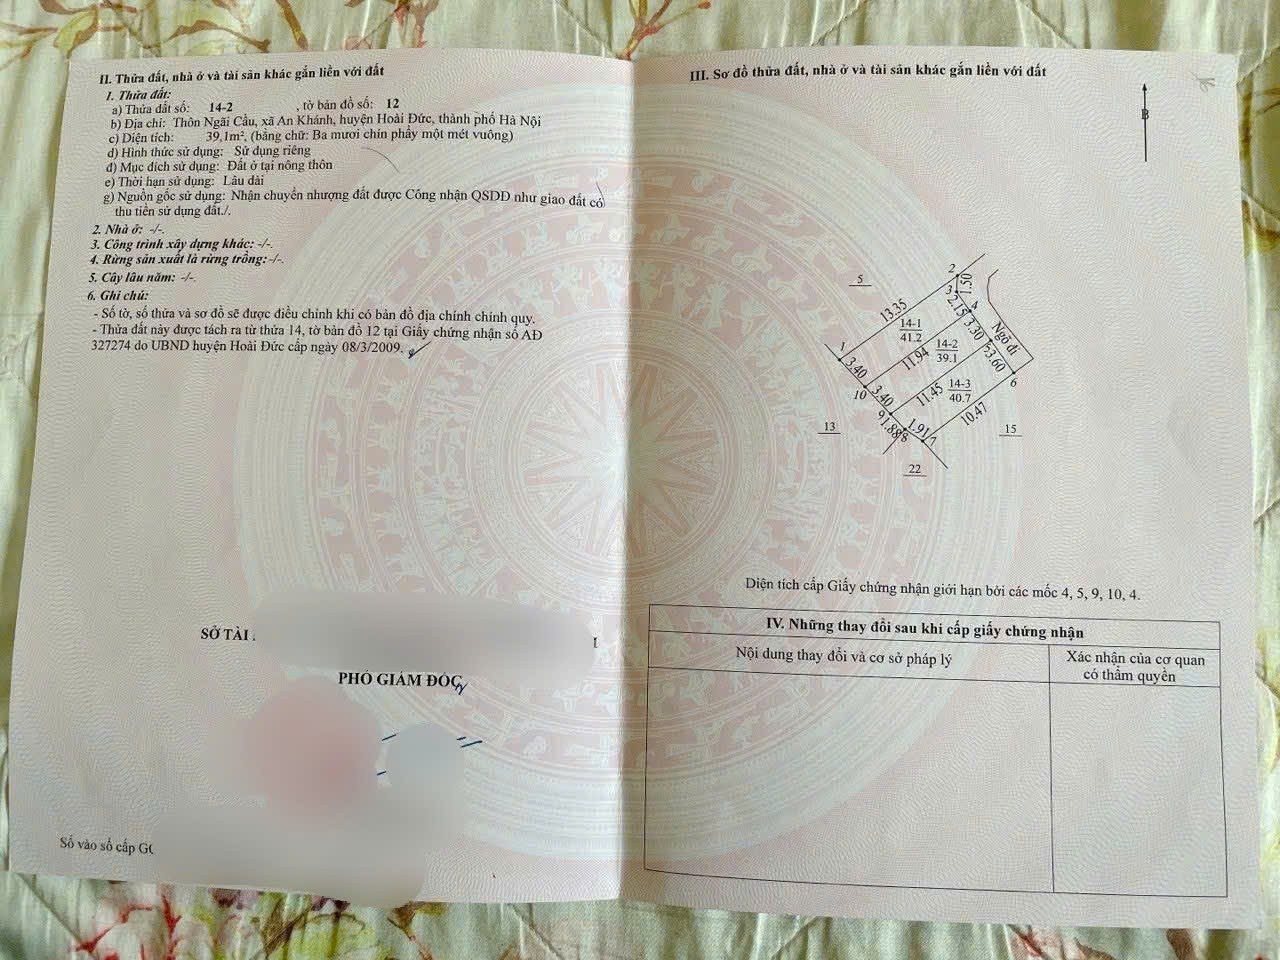 II. Thửa đất, nhà ở và tài sản khác gắn liền với đất
1. Thửa đất:
a) Thửa đất số: 14-2 , tờ bản đồ số: 12
b) Địa chỉ: Thôn Ngãi Cầu, xã An Khánh, huyện Hoài Đức, thành phố Hà Nội
c) Diện tích: 39,1m², (bằng chữ: Ba mươi chín phẩy một mét vuông)
d) Hình thức sử dụng: Sử dụng riêng
đ) Mục đích sử dụng: Đất ở tại nông thôn
e) Thời hạn sử dụng: Lâu dài
g) Nguồn gốc sử dụng: Nhận chuyển nhượng đất được Công nhận QSDĐ như giao đất có
thu tiền sử dụng đất./.
2. Nhà ở: -/-.
3. Công trình xây dựng khác: -/-.
4. Rừng sản xuất là rừng trồng:-/-.
5. Cây lâu năm: -/-.
6. Ghi chú:
- Số tờ, số thửa và sơ đồ sẽ được điều chỉnh khi có bản đồ địa chính chính quy.
- Thửa đất này được tách ra từ thửa 14, tờ bản đồ 12 tại Giấy chứng nhận số AĐ
327274 do UBND huyện Hoài Đức cấp ngày 08/3/2009.
SỞ TÀI
PHÓ GIÁM ĐỐC
Số vào sổ cấp GC
III. Sơ đồ thửa đất, nhà ở và tài sản khác gắn liền với đất
B
5
2
1.50
3
2.15
4
13.35
14-1
41.2
3.30
Ngõ đi
14-2
39.1
1
11.94
5
3.60
3.40
14-3
40.7
6
10
3.40
11.45
10.47
9
1.88
8
1.91
7
13
15
22
Diện tích cấp Giấy chứng nhận giới hạn bởi các mốc 4, 5, 9, 10, 4.
IV. Những thay đổi sau khi cấp giấy chứng nhận
Nội dung thay đổi và cơ sở pháp lý
Xác nhận của cơ quan
có thẩm quyền